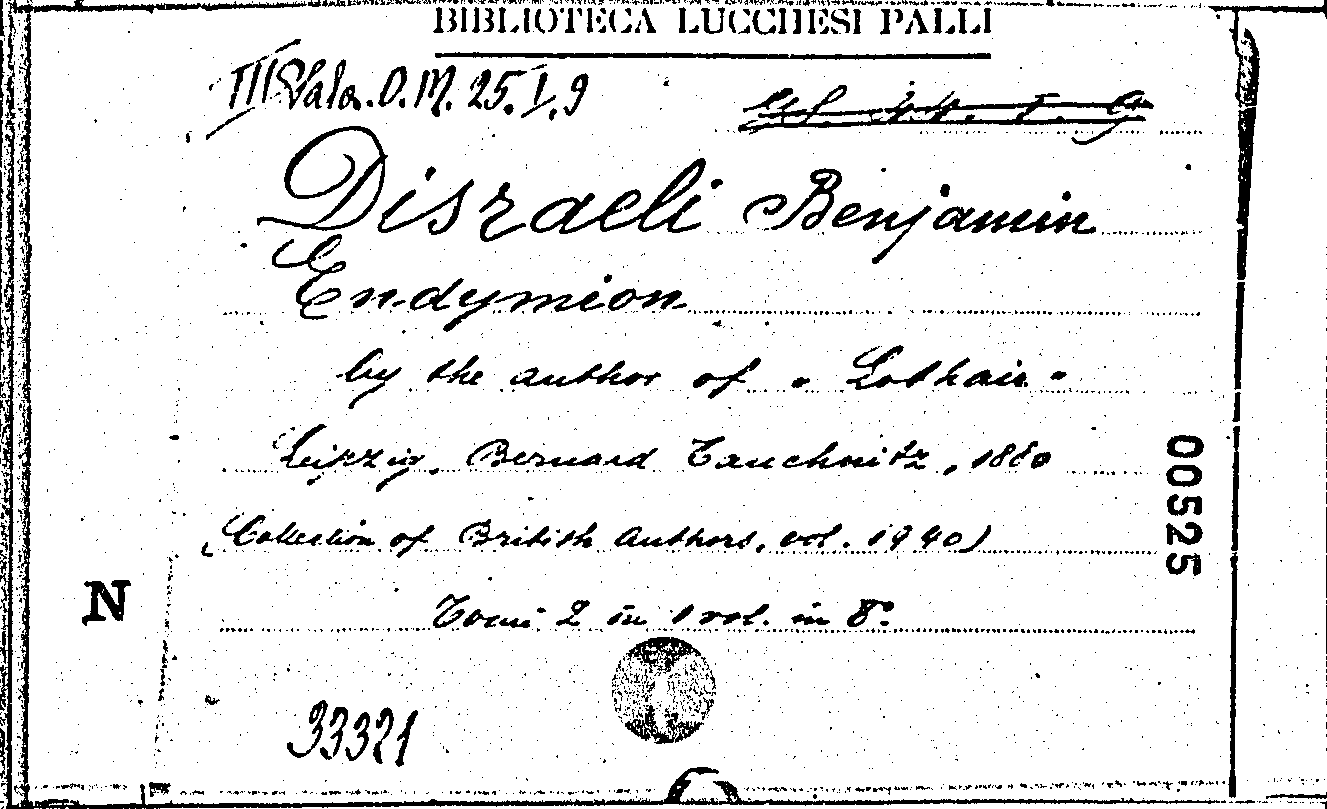 BIBLIOTECA LUCCHESI PALLI
III Sala. O. M. 25. I. 9
Disraeli Benjamin
Endymion
by the author of "Lothair"
Leipzig, Bernard Tauchnitz, 1880
(Collection of British Authors, vol. 1940)
Tomi 2 in 1 vol. in 8°.
00525
N
33321